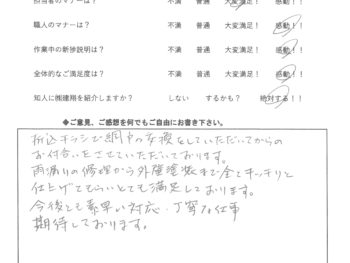 担当者のマナーは？ 不満 普通 大変満足！ 感動！！
職人のマナーは？ 不満 普通 大変満足！ 感動！！
作業中の新捗説明は？ 不満 普通 大変満足！ 感動！！
全体的なご満足度は？ 不満 普通 大変満足！ 感動！！
知人に㈱建翔を紹介しますか？ しない するかも？ 絶対する！！
◆ご意見、ご感想を何でもご自由にお書き下さい。
折込チラシで網戸の交換をしていただいてからの
お付合いをさせていただいております。
雨漏りの修理から外壁塗装まで全てキッチリと
仕上げてもらいとても満足しております。
今後とも素早い対応・丁寧な仕事
期待しております。